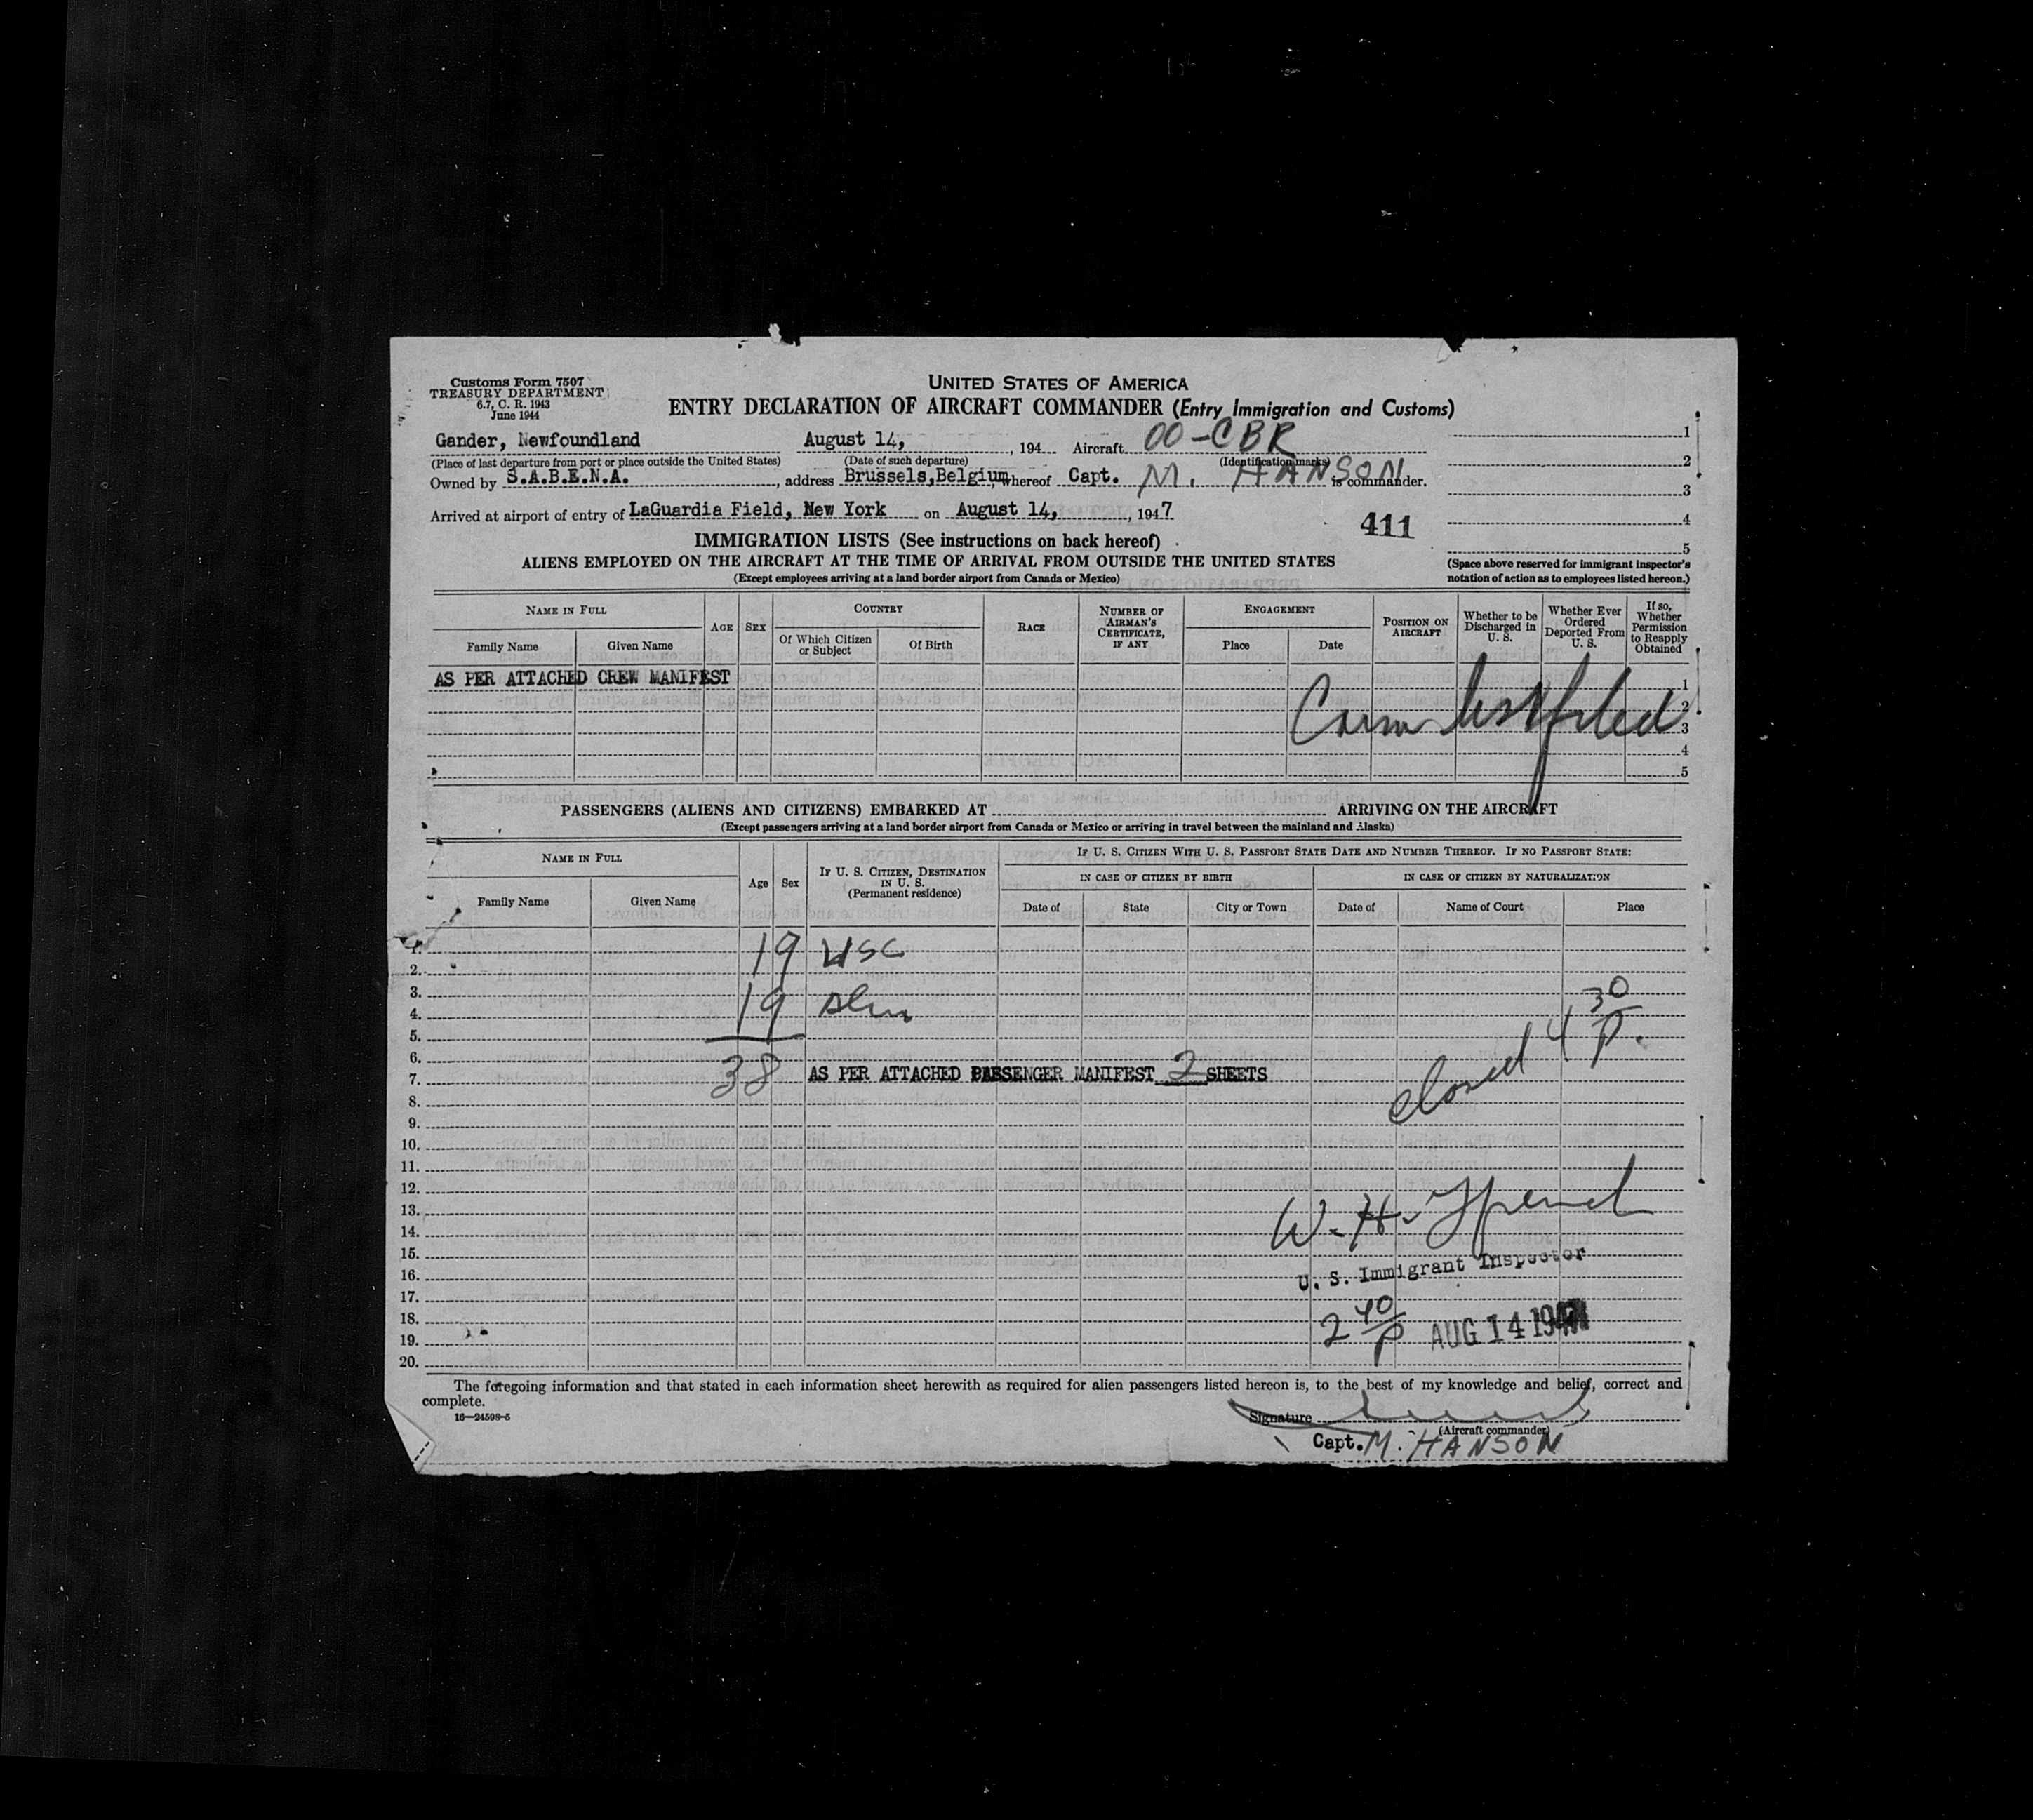 Customs Form 7507
TREASURY DEPARTMENT
6.7, C. R. 1943
June 1944
UNITED STATES OF AMERICA
ENTRY DECLARATION OF AIRCRAFT COMMANDER (Entry Immigration and Customs)
Gander, Newfoundland August 14, , 194 Aircraft OO-CBR
(Place of last departure from port or place outside the United States) (Date of such departure) (Identification marks)
Owned by S.A.B.E.N.A. , address Brussels,Belgium, whereof Capt. M. HANSON is commander.
Arrived at airport of entry of LaGuardia Field, New York on August 14, , 1947
411
1
2
3
4
5
(Space above reserved for immigrant inspector's
notation of action as to employees listed hereon.)
IMMIGRATION LISTS (See instructions on back hereof)
ALIENS EMPLOYED ON THE AIRCRAFT AT THE TIME OF ARRIVAL FROM OUTSIDE THE UNITED STATES
(Except employees arriving at a land border airport from Canada or Mexico)
NAME IN FULL AGE SEX COUNTRY RACE NUMBER OF AIRMAN'S CERTIFICATE, IF ANY ENGAGEMENT POSITION ON AIRCRAFT Whether to be Discharged in U. S. Whether Ever Ordered Deported From U. S. If so, Whether Permission to Reapply Obtained
Family Name Given Name Of Which Citizen or Subject Of Birth Place Date
AS PER ATTACHED CREW MANIFEST 1
2
list filed 3
4
5
PASSENGERS (ALIENS AND CITIZENS) EMBARKED AT ARRIVING ON THE AIRCRAFT
(Except passengers arriving at a land border airport from Canada or Mexico or arriving in travel between the mainland and Alaska)
NAME IN FULL Age Sex IF U. S. CITIZEN, DESTINATION IN U. S. (Permanent residence) IF U. S. CITIZEN WITH U. S. PASSPORT STATE DATE AND NUMBER THEREOF. IF NO PASSPORT STATE:
IN CASE OF CITIZEN BY BIRTH IN CASE OF CITIZEN BY NATURALIZATION
Family Name Given Name Date of State City or Town Date of Name of Court Place
1. 19 USC
2.
3.
4. 19
5.
6.
7. 38 AS PER ATTACHED PASSENGER MANIFEST 2 SHEETS
closed 4 30 P.
8.
9.
10.
11.
12.
13. W. H.
14.
15.
16. U. S. Immigrant Inspector
17.
18. 2 40 P AUG 14 1947
19.
20.
The foregoing information and that stated in each information sheet herewith as required for alien passengers listed hereon is, to the best of my knowledge and belief, correct and
complete.
16—24598-5
Signature
(Aircraft commander)
Capt. M. HANSON